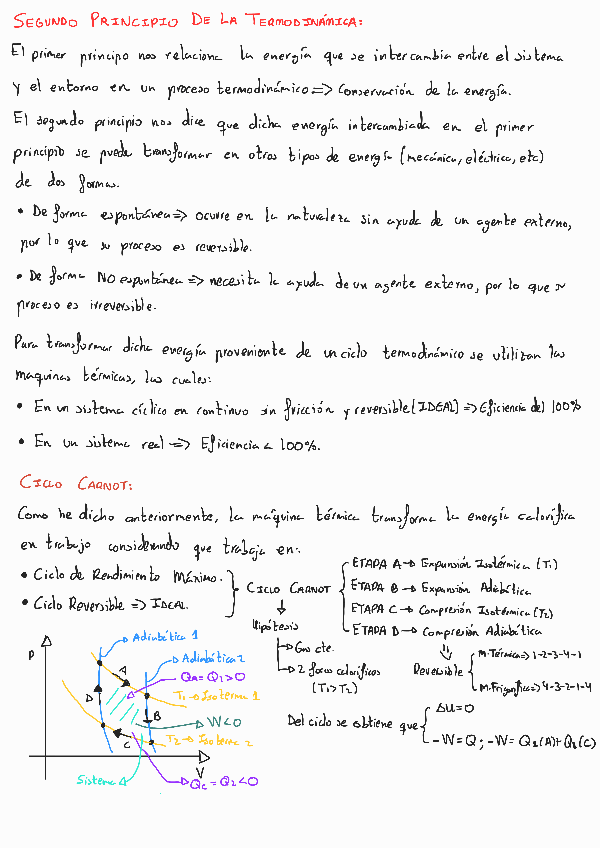 SEGUNDO PRINCIPIO DE LA TERMODINÁMICA:
El primer principo nos relaciona la energía que se intercambia entre el sistema
y el entorno en un proceso termodinámico => Conservación de la energía.
El segundo principio nos dice que dicha energía intercambiada en el primer
principio se puede transformar en otros tipos de energía (mecánica, eléctrica, etc)
de dos formas.
• De forma espontánea => ocurre en la naturaleza sin ayuda de un agente externo,
por lo que su proceso es reversible.
• De forma NO espontánea => necesita la ayuda de un agente externo, por lo que su
proceso es irreversible.
Para transformar dicha energía proveniente de un ciclo termodinámico se utilizan las
maquinas térmicas, las cuales:
• En un sistema cíclico en continuo sin fricción y reversible (IDEAL) => Eficiencia del 100%
• En un sistema real => Eficiencia < 100%.
CICLO CARNOT:
Como he dicho anteriormente, la máquina térmica transforma la energía calorífica
en trabajo considerando que trabaja en:
• Ciclo de Rendimiento Máximo.
• Ciclo Reversible => IDEAL.
CICLO CARNOT
ETAPA A → Expansión Isotérmica (T1)
ETAPA B → Expansión Adiabática
ETAPA C → Compresión Isotérmica (T2)
ETAPA D → Compresión Adiabática
Hipótesis
Gas cte.
2 focos caloríficos
(T1>T2)
Reversible
M. Térmica => 1-2-3-4-1
M. Frigorífica => 4-3-2-1-4
Del ciclo se obtiene que
ΔU=0
-W=Q ; -W= Q1(A)+Q2(C)
P
Adiabática 1
Adiabática 2
A
QA = Q1>0
T1 → Isoterma 1
D
B
W<0
C
T2 → Isoterma 2
V
Sistema
Qc = Q2<0